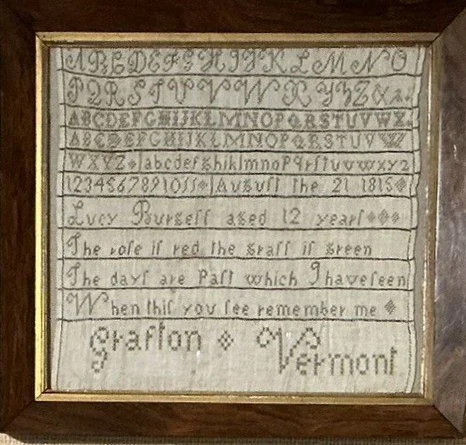 ABCDEFGHIJKLMNO
PQRSTUVWXYZ&
ABCDEFGHIJKLMNOPQRSTUVWX
ABCDEFGHIJKLMNOPQRSTUVW
WXYZ abcdefghiklmnopqrſtuvwxyz
August the 21 1815
Lucy Burgeſſ aged 12 yearſ
The roſe iſ red the graſſ iſ green
The dayſ are paſt which I have ſeen
When thiſ you ſee remember me
Grafton Vermont